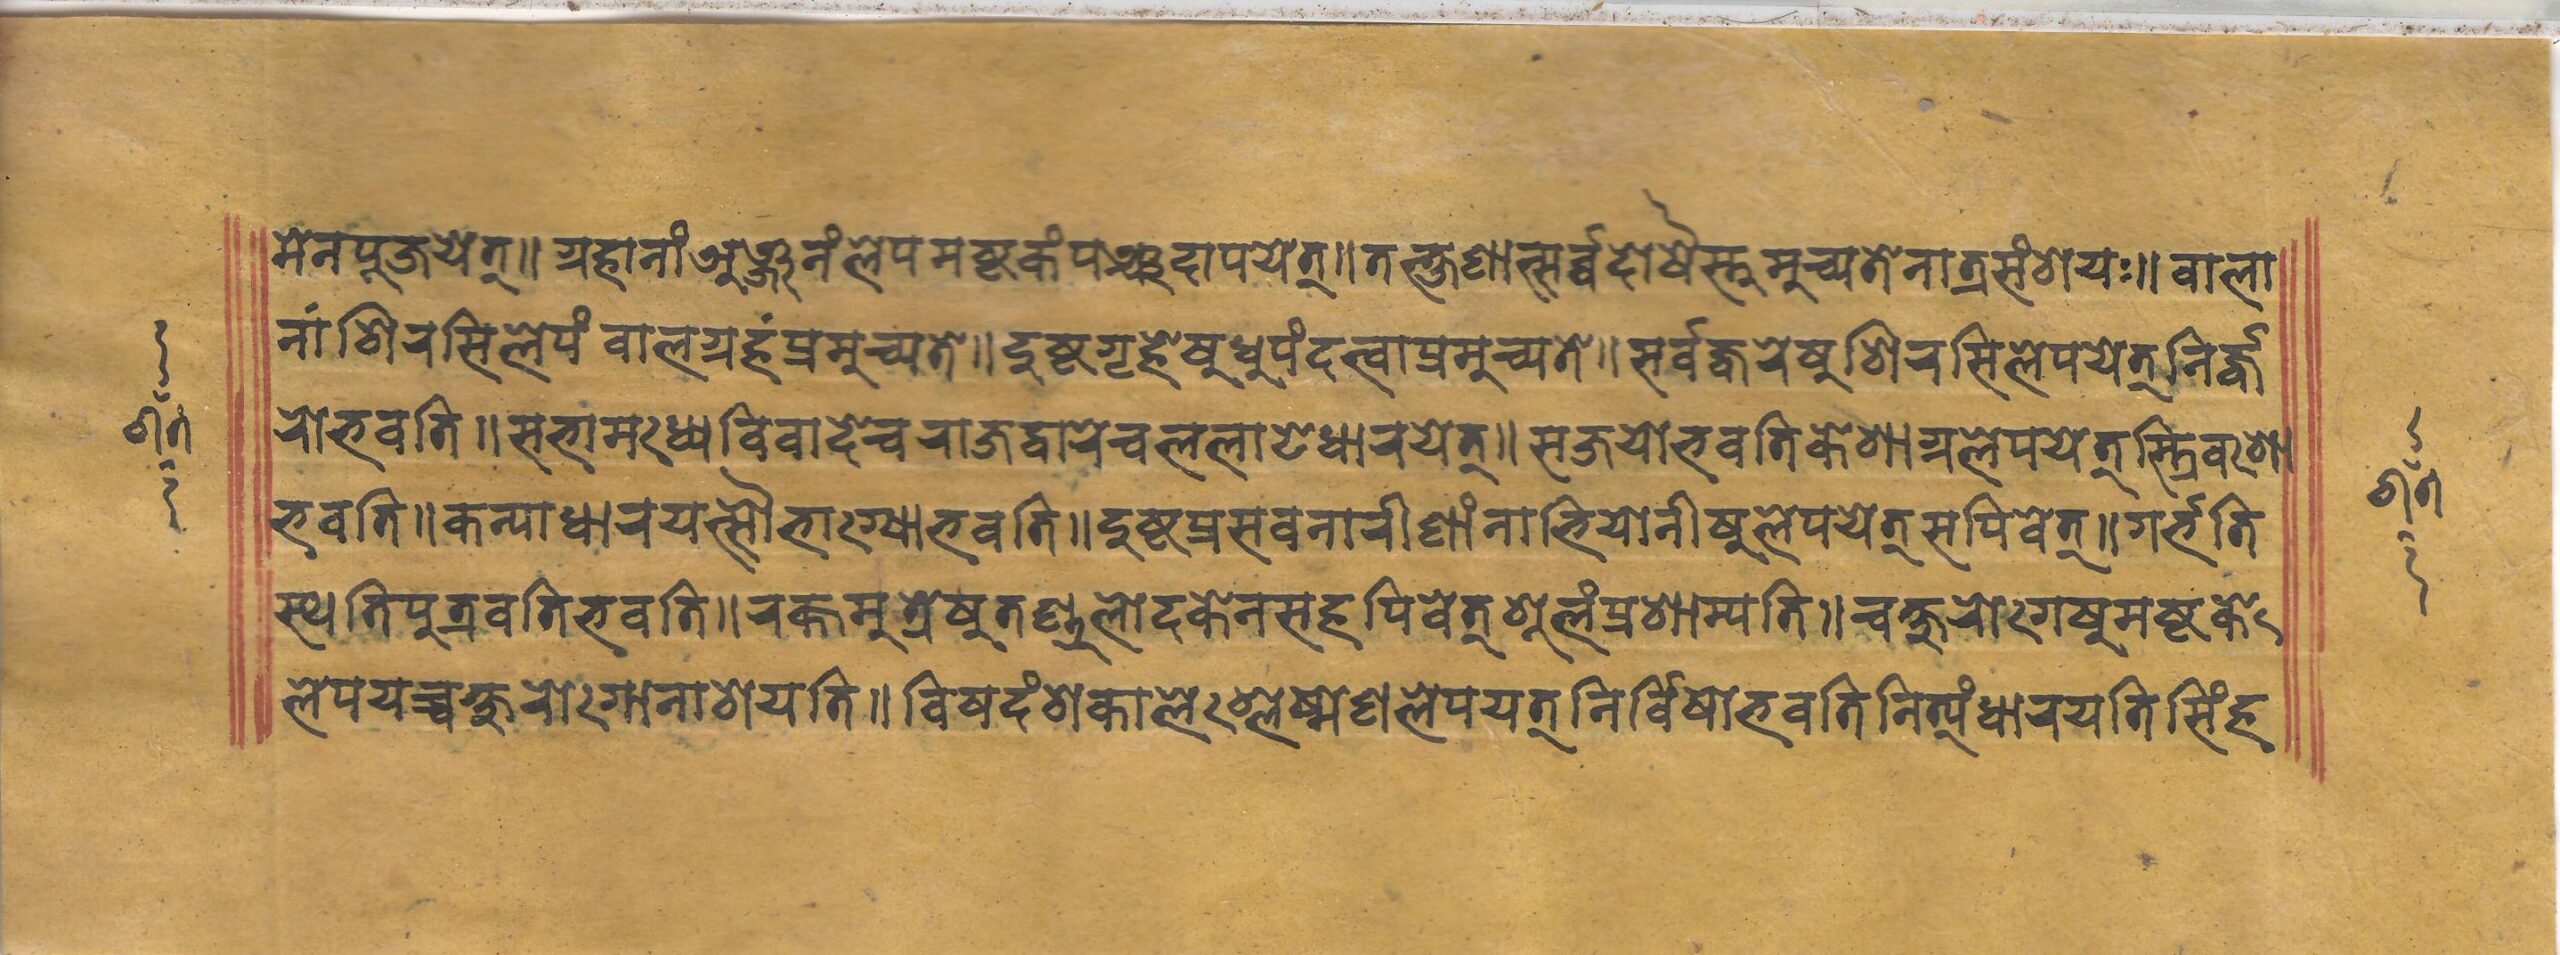 मेनपूजयेत्॥ ग्रहानां अञ्जनं लेपमष्टकं पञ्चदापयेत्॥ तत्क्षणात्सर्व्वदोषैस्तु मुच्यते नात्रसंशयः॥ वाला
नां शिरसिलेपं वालग्रहं प्रमुच्यते॥ दुष्टगृहेषु धुपं दत्वा प्रमुच्यते॥ सर्वज्वरेषु शिरसि लेपयेत् निर्ज्व
रो भवति॥ सभामध्य विवादे च राजद्वारे च ललाटे धारयेत्॥ सजयो भवति केशाग्र लेपयेत् स्त्रिवशे
भवति॥ कन्या धारयत्सौभाग्या भवति॥ दुष्टप्रसवनारीणां नाभियोनीषु लेपयेत् सपिवेत्॥ गर्भति
स्थति पुत्रवति भवति॥ रक्तमुत्रेषु तण्डुलोदकेन सह पिवेत् शूलं प्रशाम्यति॥ चक्षुरोगषु मष्टके
लेपयच्चक्षुरोगा नाशयति॥ विषदंशकाले श्लेष्मेण लेपयत् निर्विषो भवति नित्यं धारयति सिंह